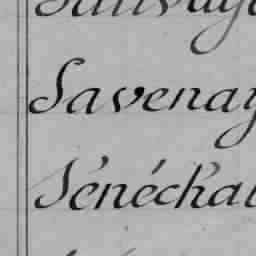 Savenay
Sénéchal